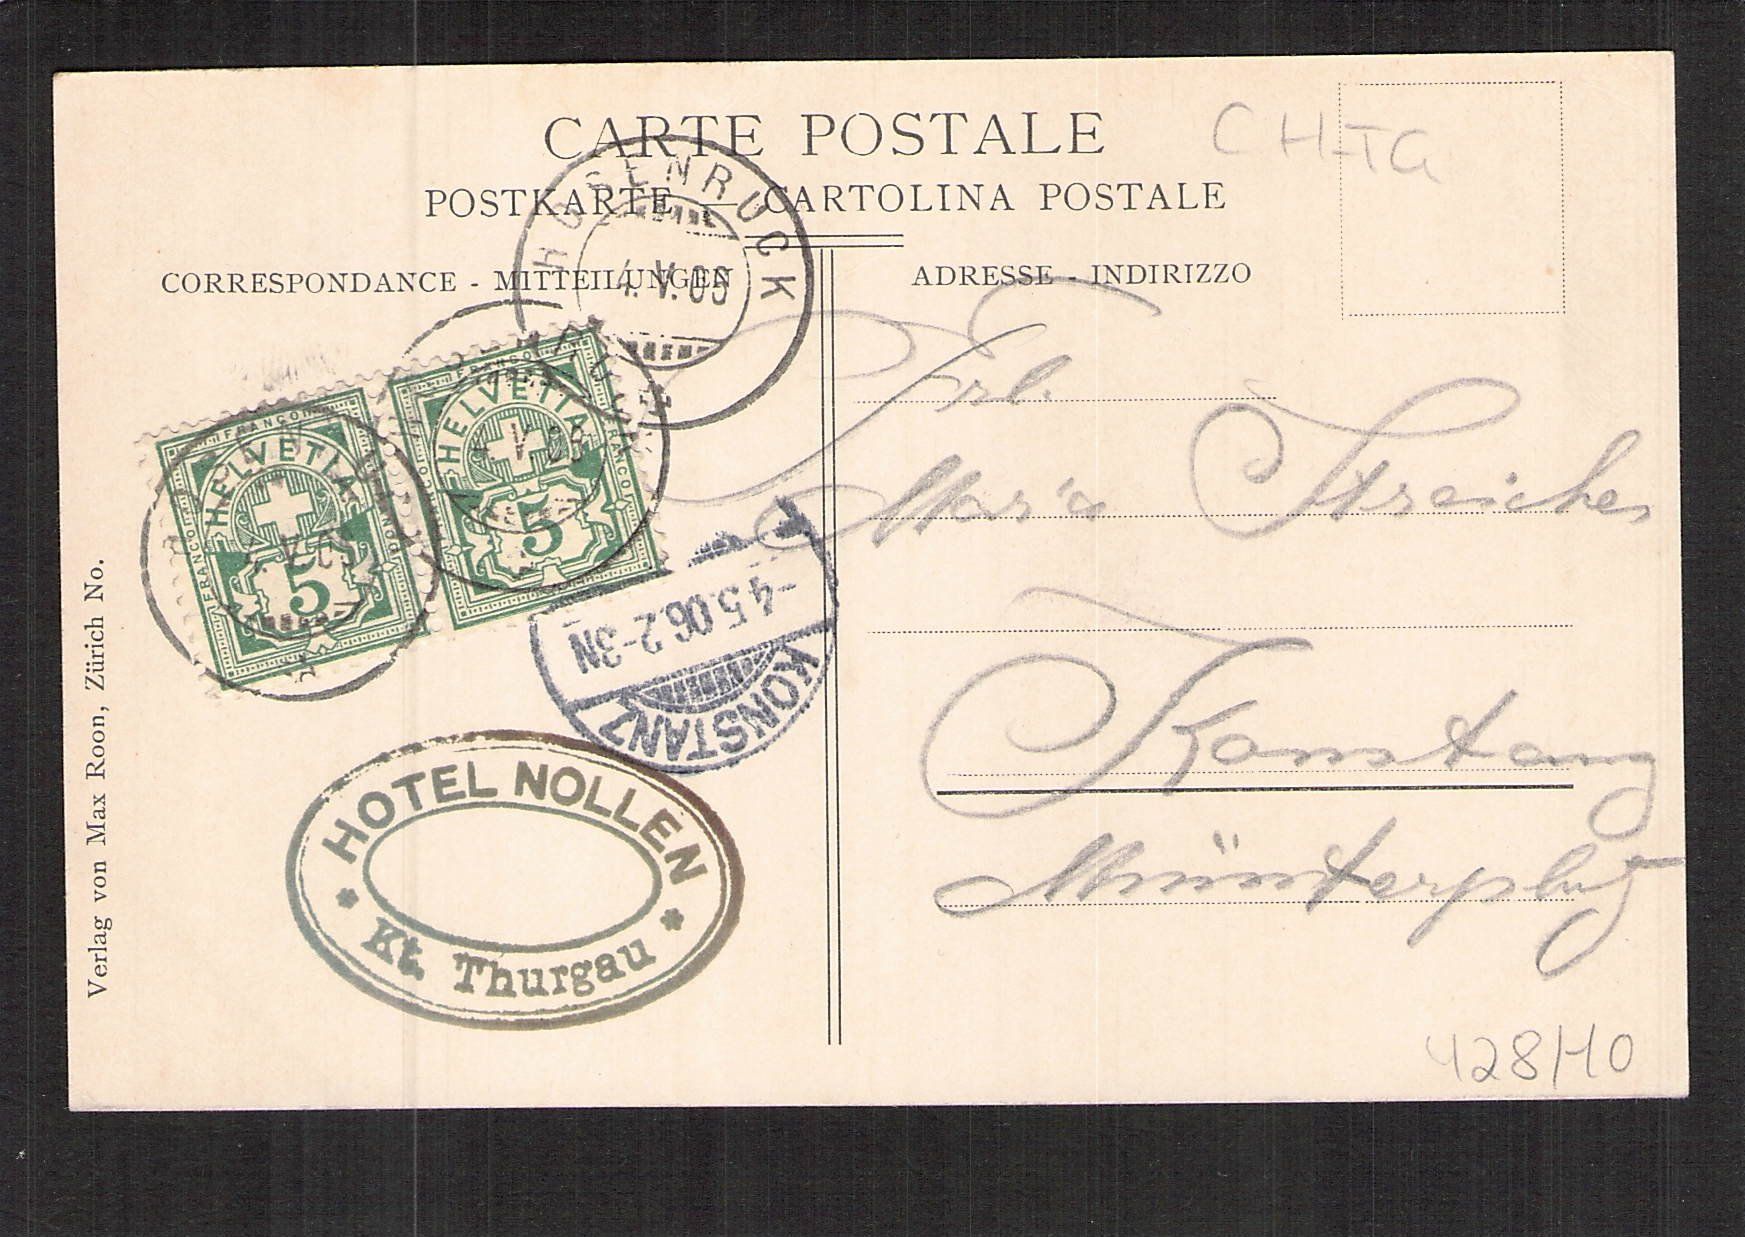 CARTE POSTALE
CH-TG
POSTKARTE — CARTOLINA POSTALE
CORRESPONDANCE - MITTEILUNGEN
ADRESSE - INDIRIZZO
HOSENRUCK
4.V.06
FRANCO HELVETIA FRANCO
5
4 V 06
FRANCO HELVETIA FRANCO
5
4 V 06
KONSTANZ
-4.5.06.2-3N
HOTEL NOLLEN
* Kt. Thurgau *
Verlag von Max Roon, Zürich No.
Frl.
Maria Streicher
Konstanz
Münsterplatz
428/10